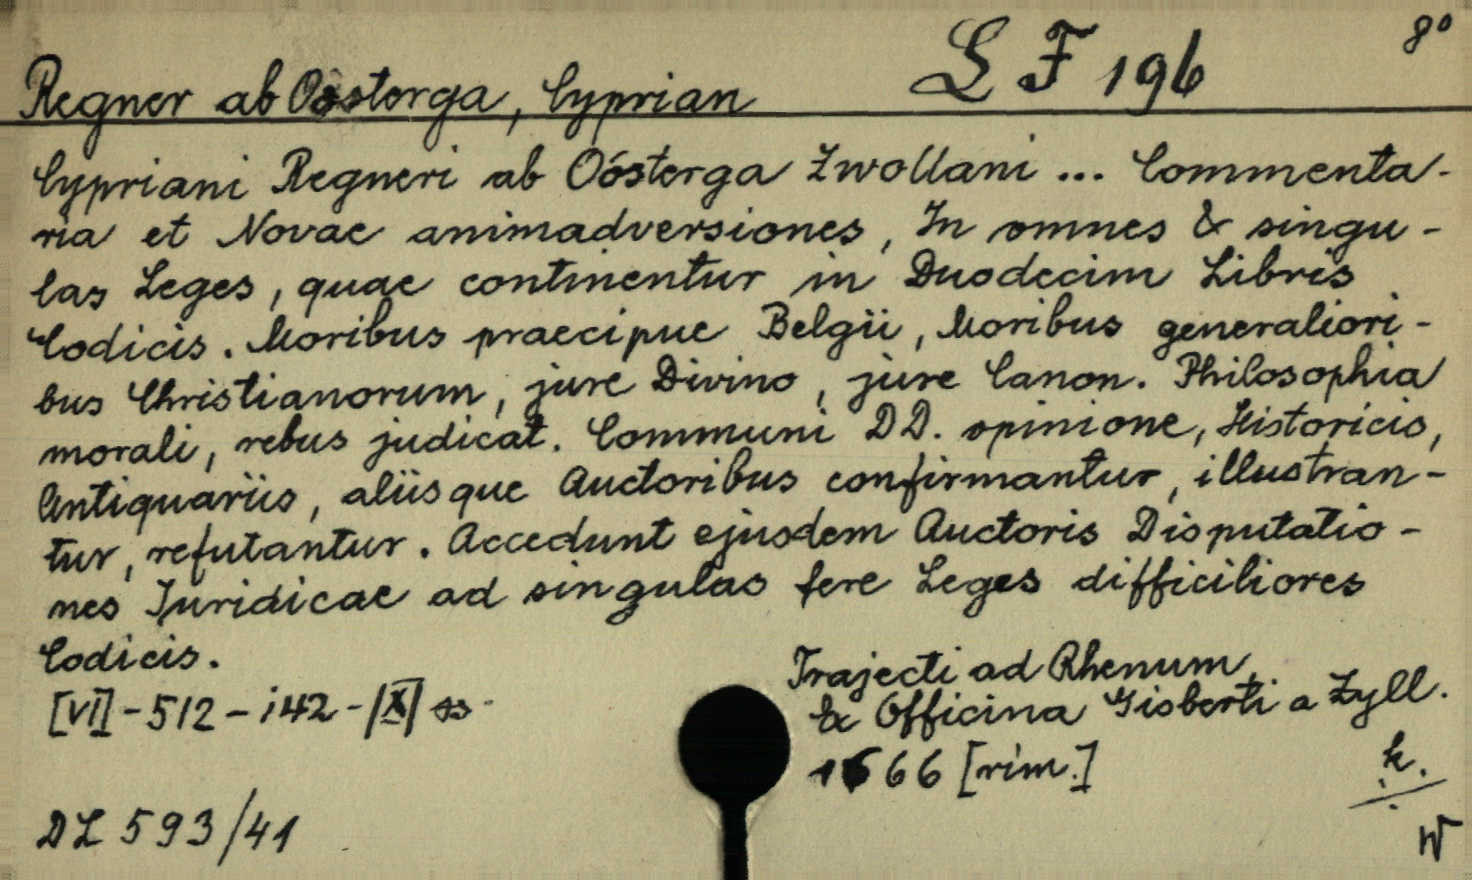 8°
L F 196
Regner ab Oosterga, Cyprian
Cypriani Regneri ab Oósterga Zwollani ... Commenta-
ria et Novae animadversiones, In omnes & singu-
las Leges, quae continentur in Duodecim Libris
Codicis. Moribus praecipue Belgii, Moribus generaliori-
bus Christianorum, jure Divino, jure Canon. Philosophia
morali, rebus judicat. Communi DD. opinione, Historicis,
Antiquariis, aliisque Auctoribus confirmantur, illustran-
tur, refutantur. Accedunt ejusdem Auctoris Disputatio-
nes Juridicae ad singulas fere Leges difficiliores
Codicis.
Trajecti ad Rhenum,
Ex Officina Gisberti a Zyll.
1666 [rim.]
[VI] - 512 - 142 - [X] ss
k.
W
DL 593/41